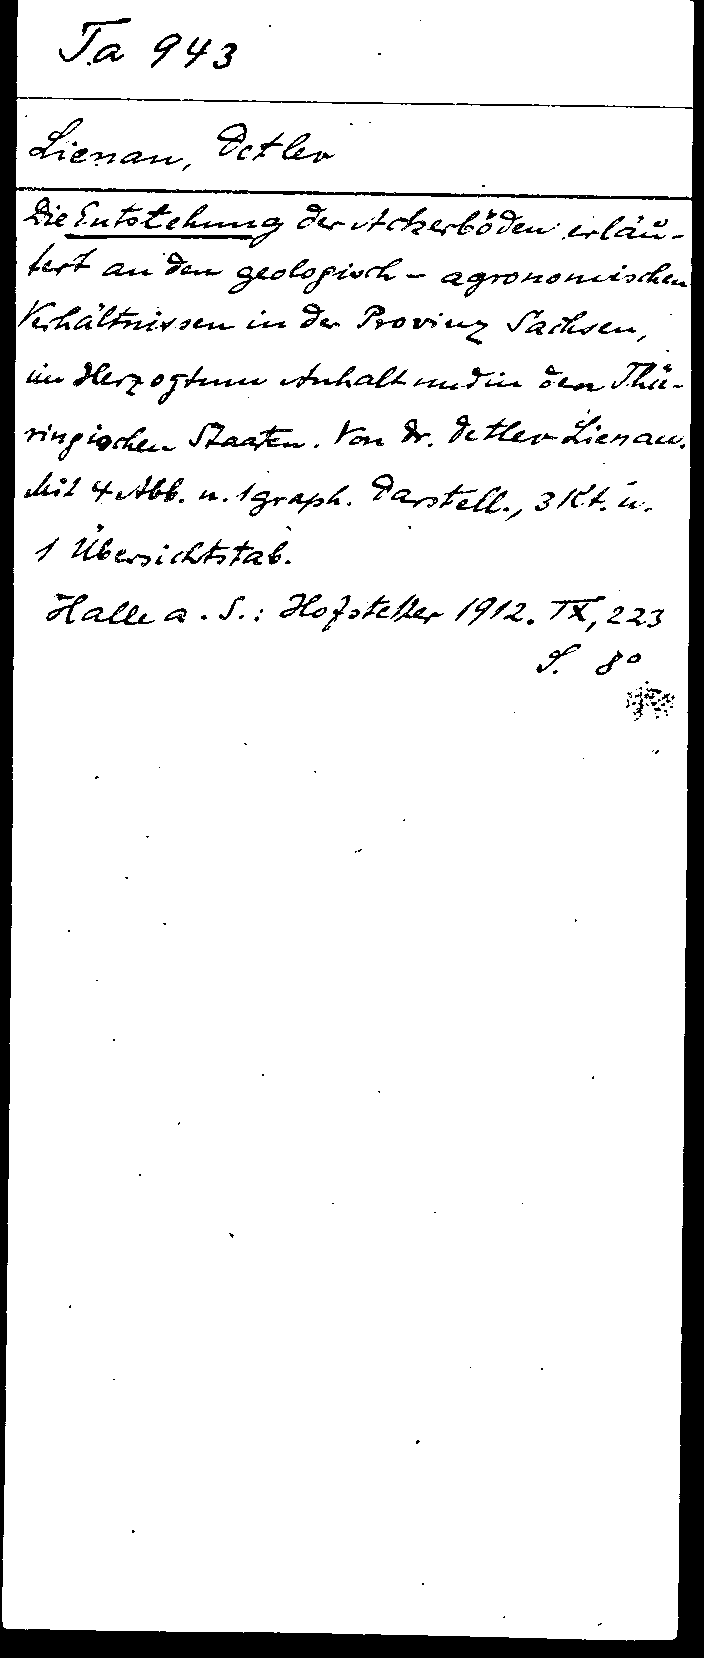 Ta 943
Lienau, Detlev
Die Entstehung der Ackerböden erläu-
tert an den geologisch - agronomischen
Verhältnissen in der Provinz Sachsen,
im Herzogtum Anhalt und in den Thü-
ringischen Staaten. Von Dr. Detlev Lienau.
Mit 4 Abb. u. 1 graph. Darstell., 3 Kt. u.
1 Übersichtstab.
Halle a. S.: Hofstetter 1912. IX, 223
S. 8°